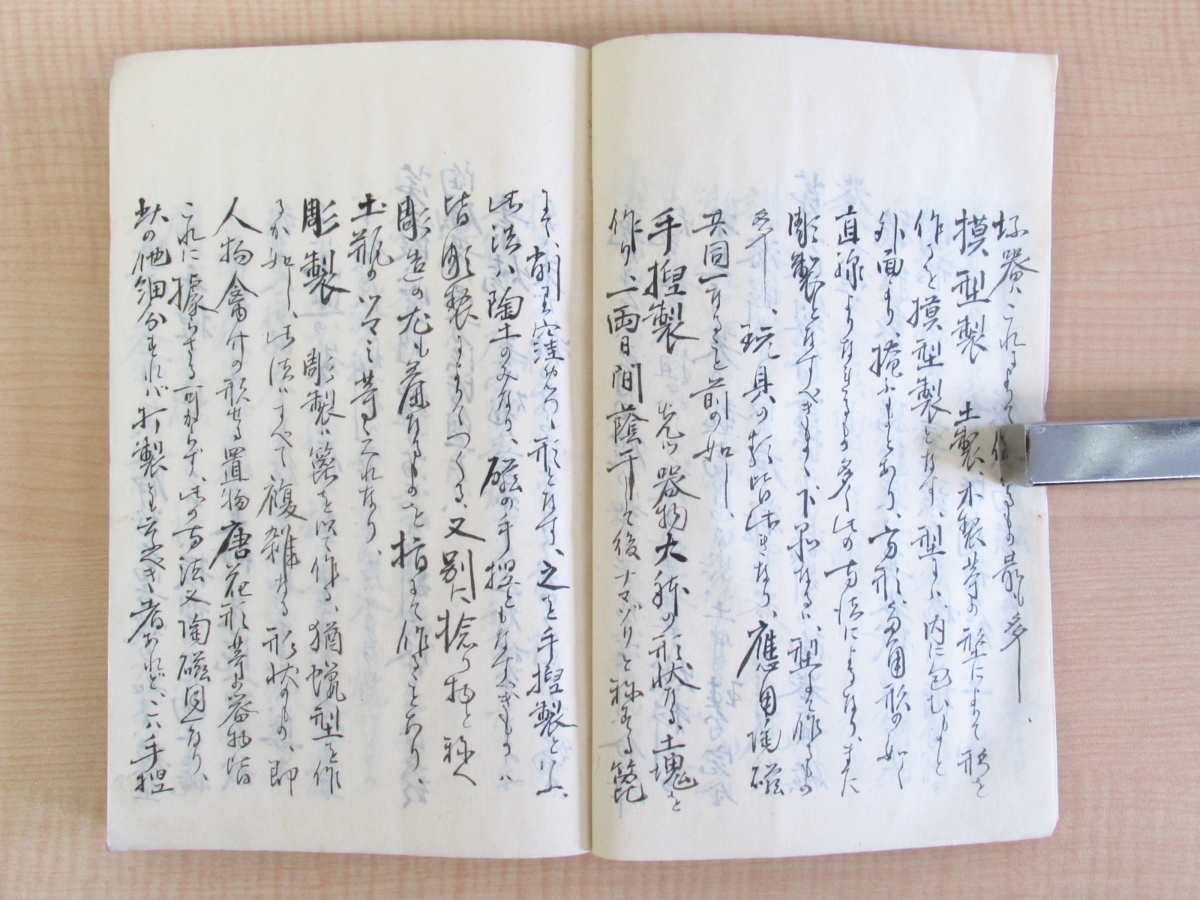 摸型製 土製、木製等の型によりて形を
作るを摸型製となす、型に、内に包むもと
外面より掩ふもとあり、方形、多角形の如く
直線よりなるもの多く此の方法によるなり、また
彫製となすべきも、下品なるは、型にて作るもの
多し、玩具の類皆此きなり、應用陶磁
共同一なること前の如し、
手捏製 先づ器物大称の形状なる土塊を
作り、一両日間蔭干して後ナマヅリと称する篦
にて、削り窪めつつ形となす、之を手捏製といふ、
此法ハ陶土のみなり、磁の手捏ともなすべきものハ
皆彫製によりてつくる、又別に捻り物と称へ
彫造の尤も簾なるものを指にて作ることあり、
土瓶のツマミ等これなり、
彫製 彫製ハ篦を以て作る、猶蠟型を作
るが如し、此法ハすべて複雑なる形状のもの、即
人物禽付の形せる置物唐花形等の器物皆
これに據らざる可からず、此の方法又陶磁同一なり、
此の他細分すれバ打製も云ふべき者あれど、こハ手捏